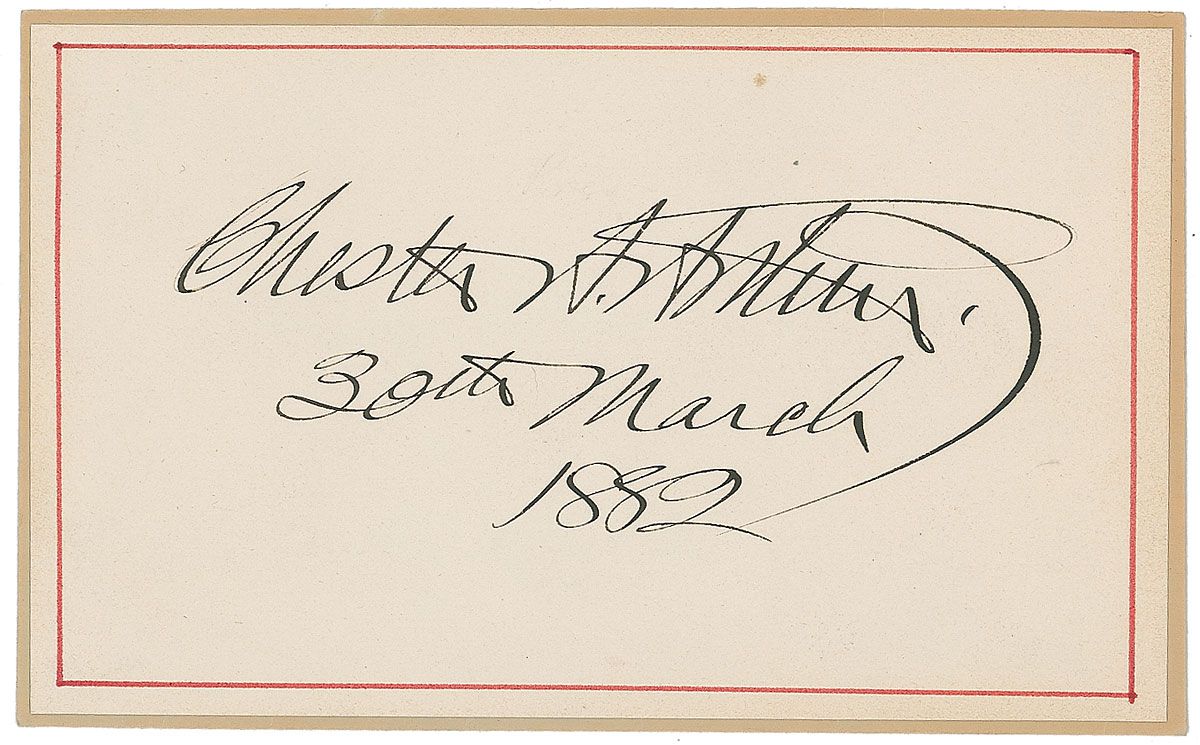 Chester A. Arthur.
30th March
1882